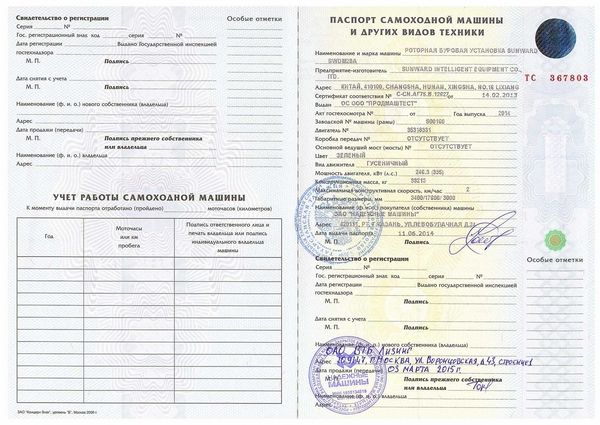 Свидетельство о регистрации
Особые отметки
Серия №
Гос. регистрационный знак код серия №
Дата регистрации Выдано Государственной инспекцией
гостехнадзора
М. П. Подпись
Дата снятия с учета
М. П. Подпись
Наименование (ф. и. о.) нового собственника (владельца)
Адрес
Дата продажи (передачи)
М. П. Подпись прежнего собственника
или владельца
Наименование (ф. и. о.) собственника (владельца)
Адрес
М. П. Подпись
УЧЕТ РАБОТЫ САМОХОДНОЙ МАШИНЫ
К моменту выдачи паспорта отработано (пройдено) моточасов (километров)
Год
Моточасы
или км
пробега
Подпись ответственного лица и
печать владельца или подпись
индивидуального владельца
машины
ПАСПОРТ САМОХОДНОЙ МАШИНЫ
И ДРУГИХ ВИДОВ ТЕХНИКИ
Наименование и марка машины РОТОРНАЯ БУРОВАЯ УСТАНОВКА SUNWARD
Предприятие-изготовитель SUNWARD INTELLIGENT EQUIPMENT CO.,
ТС 367803
Адрес КИТАЙ, 410100, CHANGSHA, HUNAN, XINGSHA, NO.16 LIXIANG
Сертификат соответствия № 14.02.2013
Выдан ОС ООО "ПРОДМАШТЕСТ"
Акт гостехосмотра № от Год выпуска 2014
Заводской № машины (рамы)
Двигатель №
Коробка передач № ОТСУТСТВУЕТ
Основной ведущий мост (мосты) № ОТСУТСТВУЕТ
Цвет ЗЕЛЕНЫЙ
Вид движителя ГУСЕНИЧНЫЙ
Мощность двигателя, кВт (л.с.)
Конструкционная масса, кг
Максимальная конструктивная скорость, км/час 2
Габаритные размеры, мм
Наименование (ф. и. о.) покупателя (собственника) машины
ЗАО "НАДЕЖНЫЕ МАШИНЫ"
Дата выдачи паспорта 11.06.2014
М. П.
Свидетельство о регистрации
Особые отметки
Серия №
Гос. регистрационный знак код серия №
Дата регистрации Выдано Государственной инспекцией
гостехнадзора
М. П. Подпись
Дата снятия с учета
М. П. Подпись
Наименование (ф. и. о.) нового собственника (владельца)
ОАО ВТБ Лизинг
Адрес 109147, г. Москва, ул. Воронцовская, д.43, строение 1
Дата продажи (передачи) 03 марта 2015 г.
Подпись прежнего собственника
или владельца
НАДЕЖНЫЕ
МАШИНЫ
Наименование (ф. и. о.) собственника (владельца)
Адрес
М. П. Подпись